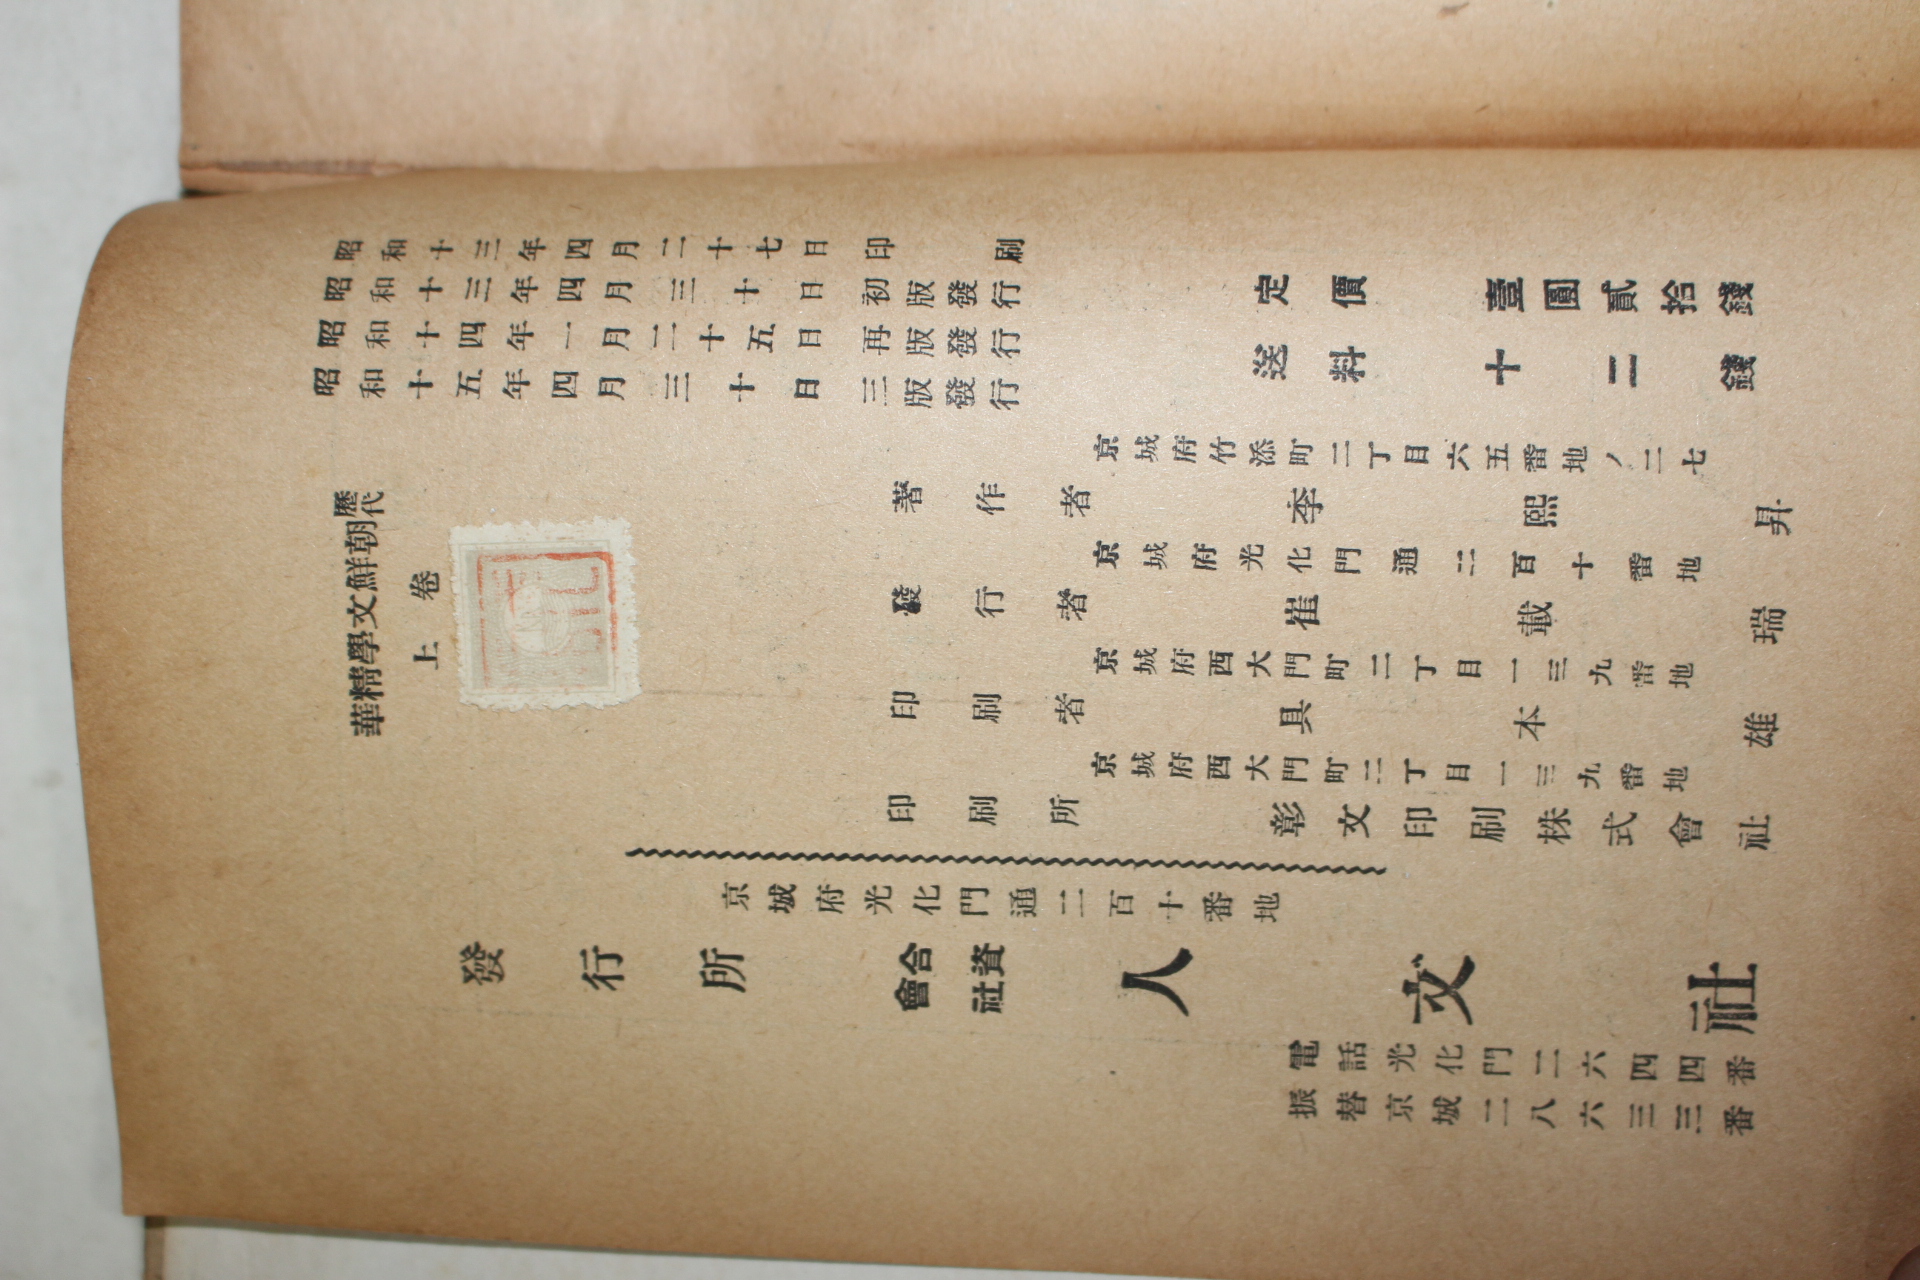 昭和十三年四月二十七日印刷
昭和十三年四月三十日初版發行
昭和十四年一月二十五日再版發行
昭和十五年四月三十日三版發行
定價壹圓貳拾錢
送料十二錢
歷代朝鮮文學精華
上卷
京城府竹添町二丁目六五番地ノ二七
著作者 李熙昇
京城府光化門通二百十番地
發行者 崔載瑞
京城府西大門町二丁目一三九番地
印刷者 具本雄
京城府西大門町二丁目一三九番地
印刷所 彰文印刷株式會社
京城府光化門通二百十番地
發行所 合資會社 人文社
電話光化門二六四四番
振替京城二八六三三番